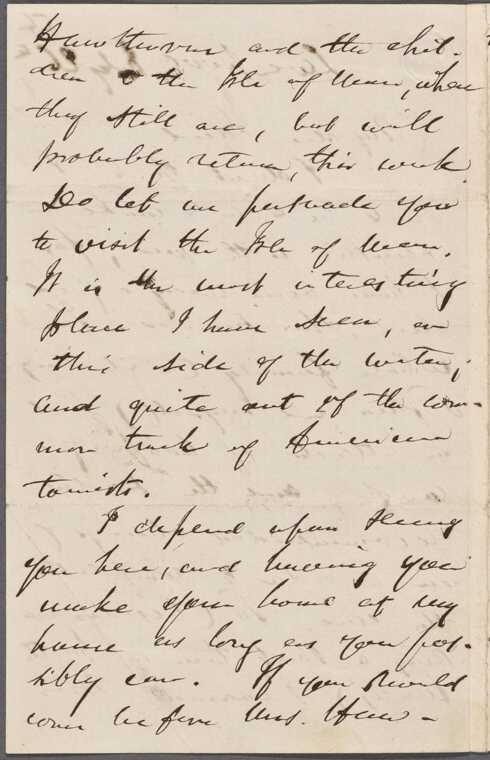 Hawthorne and the chil-
dren to the Isle of Man, where
they still are, but will
probably return, this week.
Do let me persuade you
to visit the Isle of Man.
It is the most interesting
place I have seen, on
this side of the water,
and quite out of the com-
mon track of American
tourists.
I depend upon seeing
you here, and having you
make your home at my
house as long as you pos-
sibly can. If you should
come before Mrs. Haw-